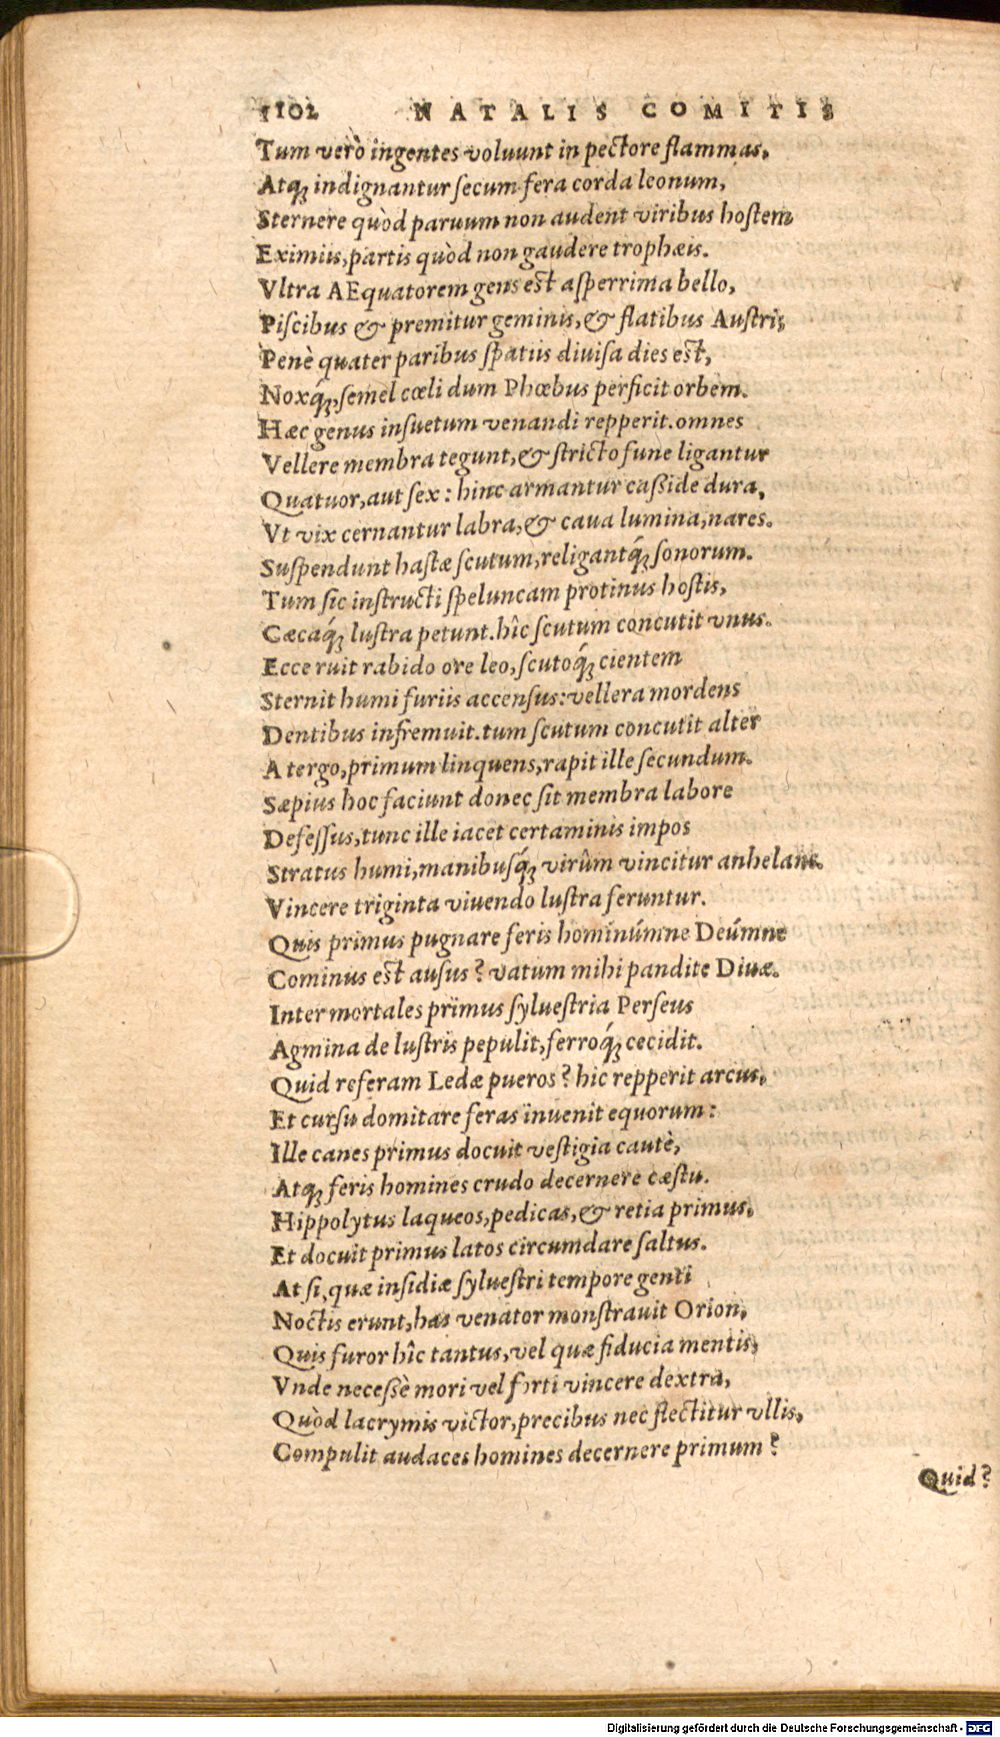 1102 NATALIS COMITIS
Tum verò ingentes voluunt in pectore flammas,
Atq; indignantur ſecum fera corda leonum,
Sternere quòd paruum non audent viribus hoſtem
Eximiis, partis quòd non gaudere trophæis.
Vltra AEquatorem gens est aſperrima bello,
Piſcibus & premitur geminis, & flatibus Auſtri,
Penè quater paribus ſpatiis diuiſa dies est,
Noxq́;, ſemel cœli dum Phœbus perficit orbem.
Hæc genus inſuetum venandi repperit. omnes
Vellere membra tegunt, & ſtricto fune ligantur
Quatuor, aut ſex: hinc armantur caßide dura,
Vt vix cernantur labra, & caua lumina, nares.
Suſpendunt haſtæ ſcutum, religantq́; ſonorum.
Tum ſic inſtructi ſpeluncam protinus hoſtis,
Cæcaq́; luſtra petunt. hîc ſcutum concutit vnus.
Ecce ruit rabido ore leo, ſcutoq́; cientem
Sternit humi furiis accenſus: vellera mordens
Dentibus infremuit. tum ſcutum concutit alter
A tergo, primum linquens, rapit ille ſecundum.
Sæpius hoc faciunt donec ſit membra labore
Defeſſus, tunc ille iacet certaminis impos
Stratus humi, manibuſq́; virûm vincitur anhelans.
Vincere triginta viuendo luſtra feruntur.
Quis primus pugnare feris hominúmne Deúmne
Cominus est auſus? vatum mihi pandite Diuæ.
Inter mortales primus ſylueſtria Perſeus
Agmina de luſtris pepulit, ferroq́; cecidit.
Quid referam Ledæ pueros? hic repperit arcus,
Et curſu domitare feras inuenit equorum:
Ille canes primus docuit veſtigia cautè,
Atq; feris homines crudo decernere cæſtu.
Hippolytus laqueos, pedicas, & retia primus,
Et docuit primus latos circumdare ſaltus.
At ſi, quæ inſidiæ ſylueſtri tempore genti
Noctis erunt, has venator monſtrauit Orion,
Quis furor hîc tantus, vel quæ fiducia mentis,
Vnde neceſſè mori vel forti vincere dextra,
Quòd lacrymis victor, precibus nec flectitur vllis,
Compulit audaces homines decernere primum?
Quid?
Digitalisierung gefördert durch die Deutsche Forschungsgemeinschaft - DFG